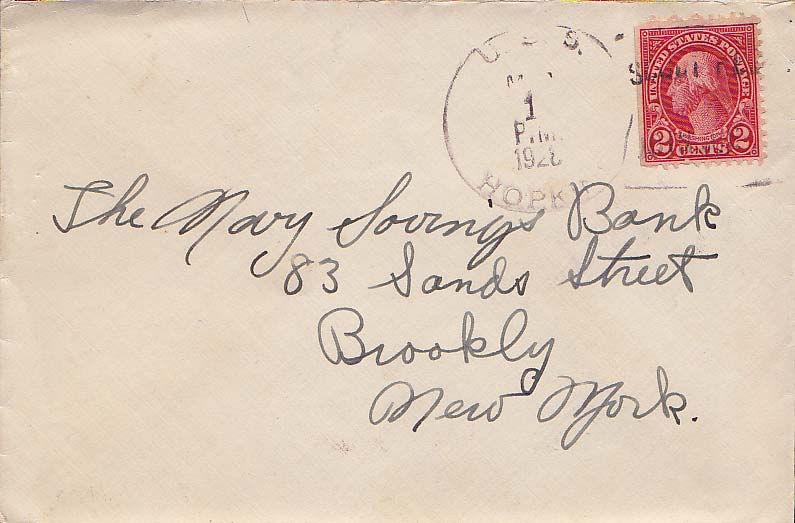 U.S.S.
1
P.M.
1928
HOPK
UNITED STATES POSTAGE
WASHINGTON
2 CENTS 2
The Navy Savings Bank
83 Sands Street
Brookly
New York.